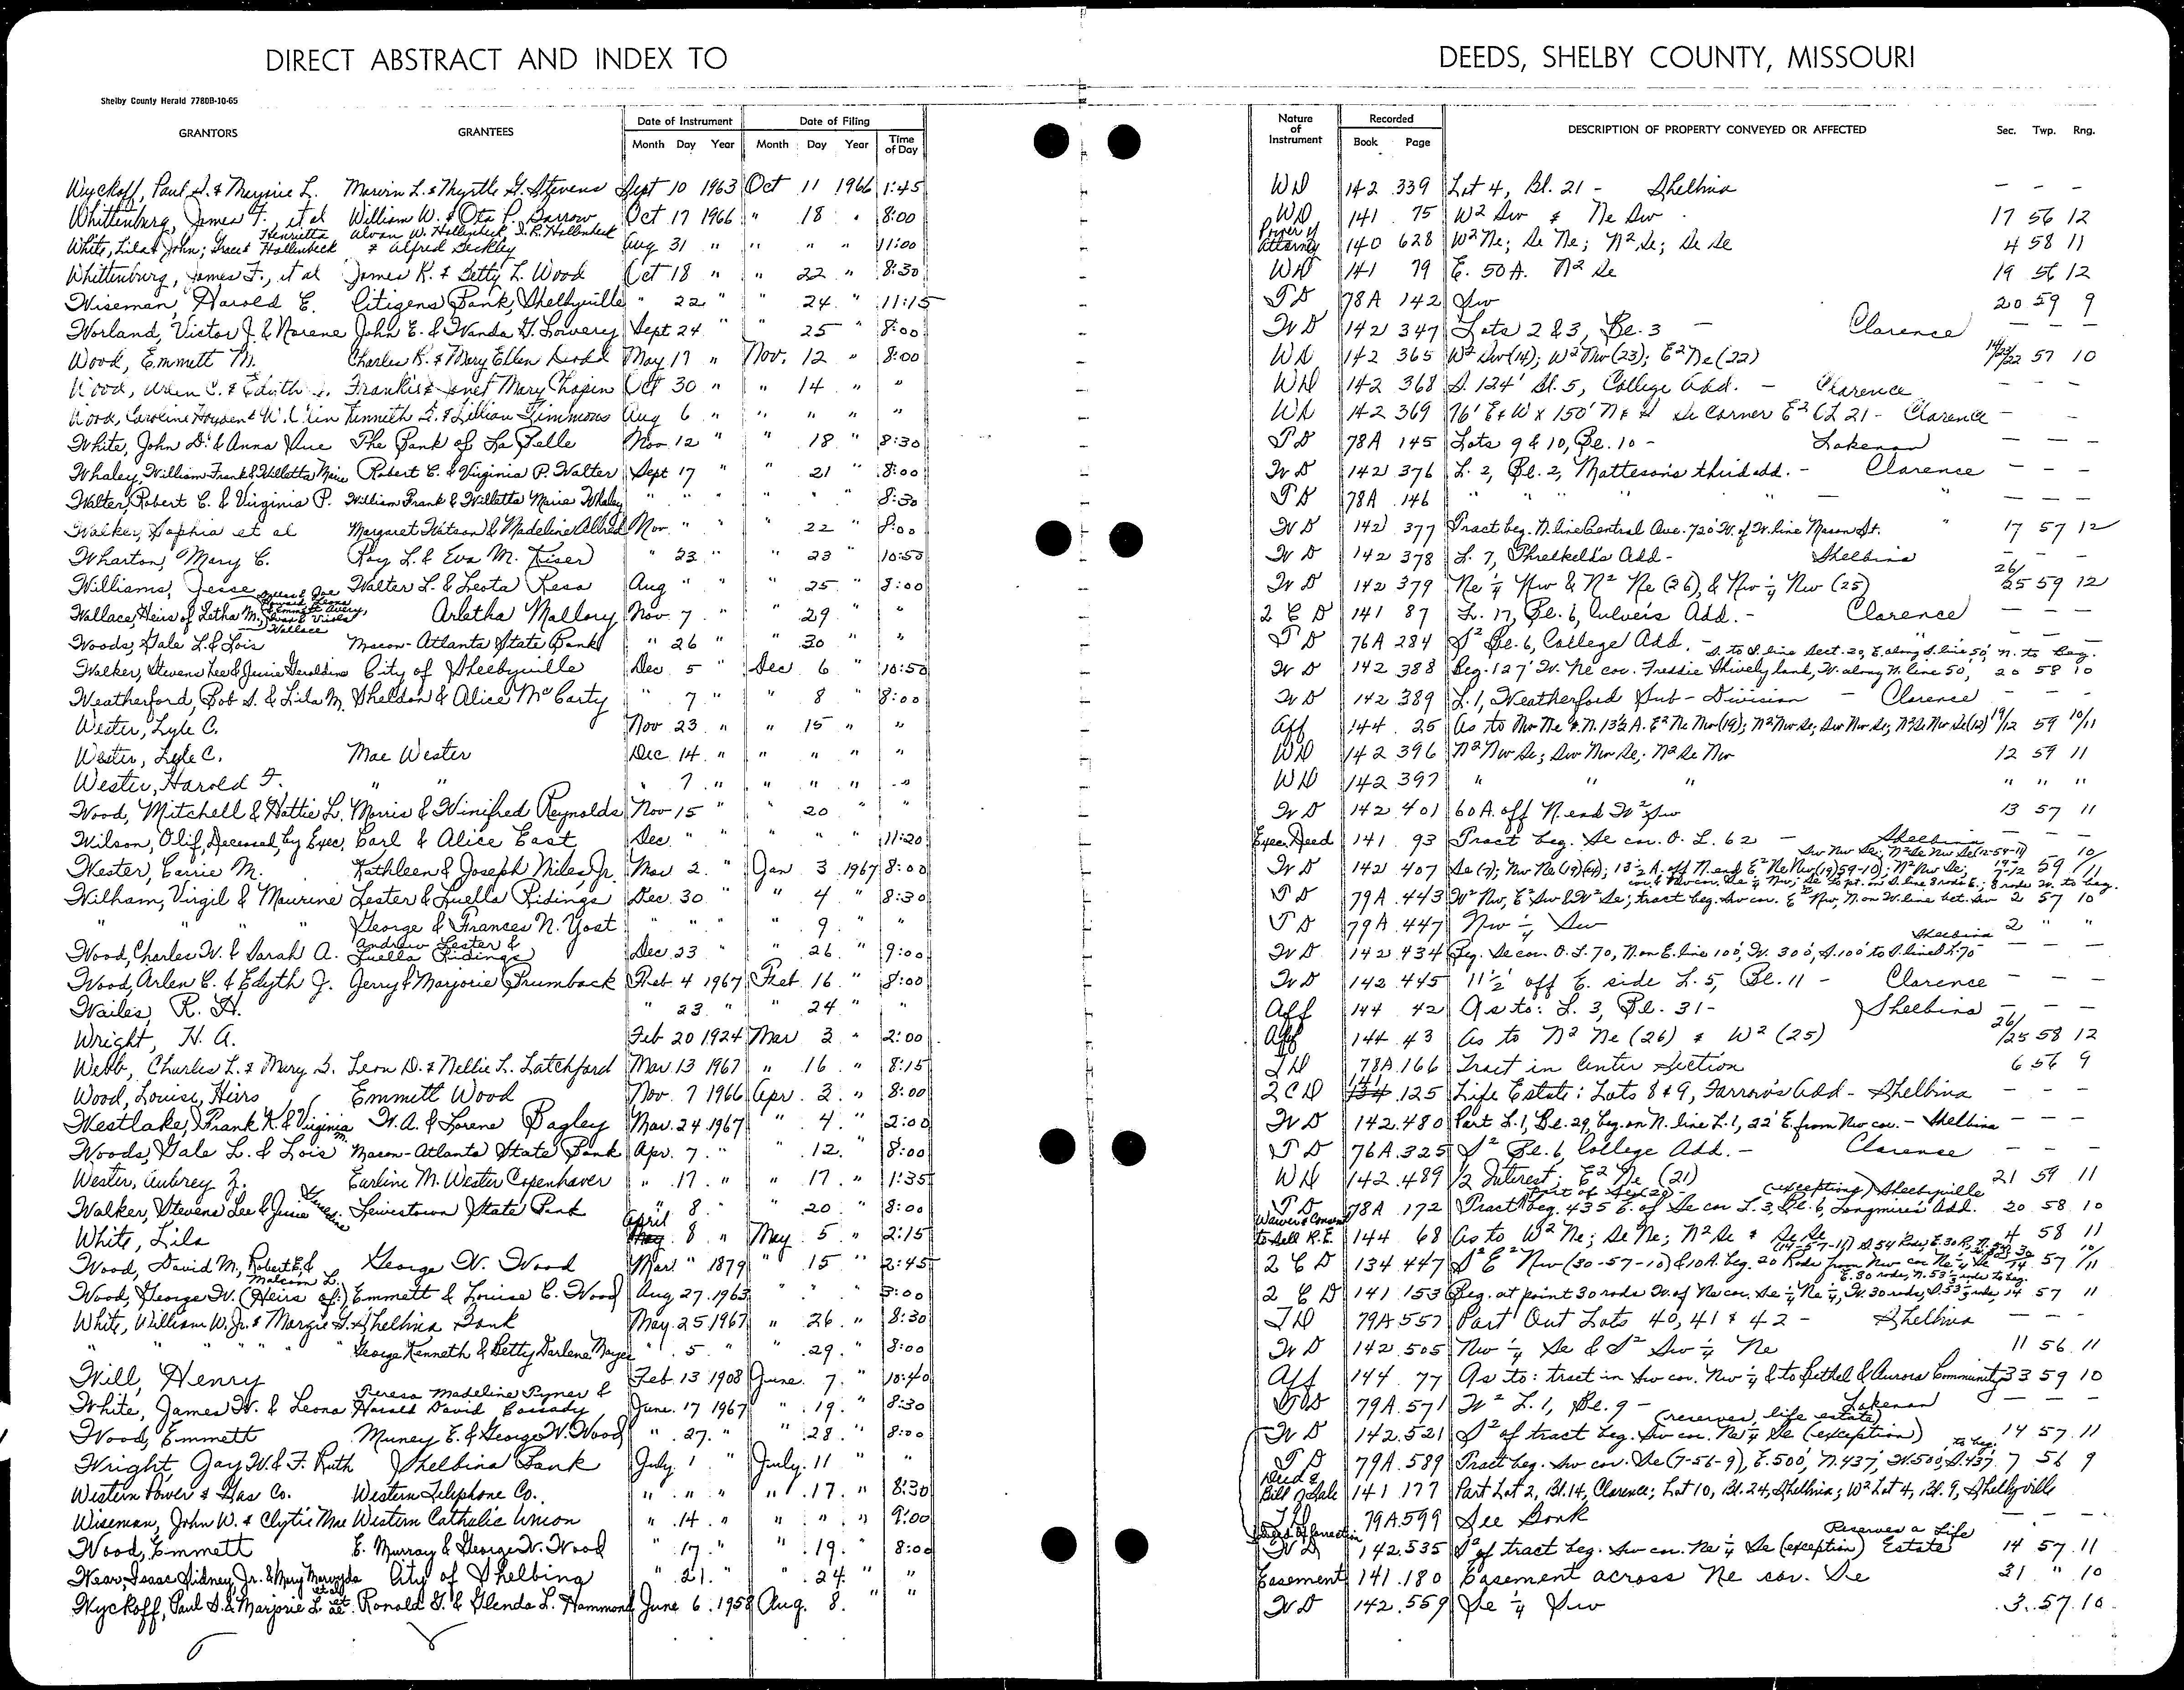 DIRECT ABSTRACT AND INDEX TO DEEDS, SHELBY COUNTY, MISSOURI
Shelby County Herald 7780B-10-65
GRANTORS GRANTEES Date of Instrument Month Day Year Date of Filing Month Day Year Time of Day Nature of Instrument Recorded Book Page DESCRIPTION OF PROPERTY CONVEYED OR AFFECTED Sec. Twp. Rng.
Wyckoff, Paul S. & Marjorie L. Marvin L. & Myrtle G. Stevens Sept 10 1963 Oct 11 1966 1:45 WD 142 339 Lot 4, Bl. 21 - Shelbina - - -
Whittenburg, James F., et al William W. & Ota P. Darrow Oct 17 1966 " 18 " 8:00 WD 141 75 W2 Sw & Ne Sw 17 56 12
White, Lila & John; Grace & Henrietta Hollenbeck Alvan W. Hollenbeck I. R. Hollenbeck & Alfred Deckley Aug 31 " " " " 11:00 Power of Attorney 140 628 W2 Ne; Se Ne; N2 Se; Se Se 4 58 11
Whittenburg, James F., et al James R. & Betty L. Wood Oct 18 " " 22 " 8:30 WD 141 79 E. 50 A. N2 Se 19 56 12
Wiseman, Harold E. Citizens Bank, Shelbyville " 22 " " 24 " 11:15 TD 78A 142 Sw 20 59 9
Worland, Victor J. & Norene John E. & Wanda G. Lowery Sept 24 " " 25 " 8:00 WD 142 347 Lots 2 & 3, Bl. 3 - Clarence - - -
Wood, Emmett M. Charles R. & Mary Ellen May 17 " Nov. 12 " 8:00 WD 142 365 W2 Sw (14); W2 Nw (23); E2 Ne (22) 14/23/22 57 10
Wood, Arlen C. & Edyth J. Frankie & Janet Mary Chapin Oct 30 " " 14 " " WD 142 368 S. 124' Bl. 5, College Add. - Clarence - - -
Wood, Caroline Hoysen & Kenneth L. & Lillian Timmons Aug 6 " " " " " WD 142 369 76' E & W x 150' N & S Se Corner E2 OL 21 - Clarence - -
White, John D. & Anna Sue The Bank of La Belle Nov 12 " " 18 " 8:30 TD 78A 145 Lots 9 & 10, Bl. 10 - Lakenan - - -
Whaley, William Frank & Willetta Marie Robert C. & Virginia P. Walter Sept 17 " " 21 " 8:00 WD 142 376 L. 2, Bl. 2, Matteson's third add. - Clarence - - -
Walter, Robert C. & Virginia P. William Frank & Willetta Marie Whaley " " " " " " 8:30 TD 78A 146 " " " " - " - - -
Walker, Sophia et al Margaret Watson & Madeline Allred Nov " " " 22 " 8:00 WD 142 377 Tract beg. N. line Central Ave. 720' W. of W. line Mason St. " 17 57 12
Wharton, Mary C. Roy L. & Eva M. Kiser " 23 " " 23 " 10:50 WD 142 378 L. 7, Threlkeld's Add - Shelbina - - -
Williams, Jesse Walter L. & Leota Resa Aug " " " 25 " 8:00 WD 142 379 Ne 1/4 Nw & N2 Ne (26), & Nw 1/4 Nw (25) 26/25 59 12
Wallace, Heirs of Letha M., Wallace Arletha Mallory Nov 7 " " 29 " 2 C D 141 87 L. 17, Bl. 6, Culver's Add. - Clarence - - -
Woods, Gale L. & Lois Macon-Atlanta State Bank " 26 " " 30 " TD 76A 284 S2 Bl. 6, College Add. - "
Walker, Stevens Lee & Jessie Geraldine City of Shelbyville Dec 5 " Dec 6 " 10:50 WD 142 388 Beg. 127' W. Ne cor. Freddie Shively land, W. along N. line 50', S. to S. line Sect. 20, E. along S. line 50', N. to beg. 20 58 10
Weatherford, Bob S. & Lila M. Sheldon & Alice McCarty " 7 " " 8 " 8:00 WD 142 389 L. 1, Weatherford Sub-Division - Clarence - - -
Wester, Lyle C. Nov 23 " " 15 " " Aff 144 25 As to Nw Ne & N. 13½ A. E2 Ne Nw (19); N2 Nw Se; Sw Nw Se; N2 Se Nw Se (12) 19/12 59 10/11
Wester, Lyle C. Mae Wester Dec 14 " " " " " WD 142 396 N2 Nw Se; Sw Nw Se; N2 Se Nw 12 59 11
Wester, Harold F. " " " 7 " " " " " WD 142 397 " " " " " "
Wood, Mitchell & Hattie L. Morris & Winifred Reynolds Nov 15 " " 20 " " WD 142 401 60 A. off N. end W2 Sw 13 57 11
Wilson, Olif, Deceased, by Exec. Earl & Alice East Dec. " " " " " 11:20 Exec. Deed 141 93 Tract beg. Se cor. O. L. 62 - Shelbina - - -
Wester, Carrie M. Kathleen & Joseph Niles, Jr. Nov 2 " Jan 3 1967 8:00 WD 142 407 13½ A. off N. end E2 Ne Nw (19) 59-10); N2 Nw Se, Sw Nw Se; N2 Se Nw Se (12-59-11) 59 10/11
Wilham, Virgil & Maurine Lester & Luella Ridings Dec. 30 " " 4 " 8:30 TD 79A 443 W2 Nw, E2 Sw & W2 Se; tract beg. Sw cor. E2 Nw, N. on W. line 2 57 10
" " " George & Frances N. Yost " " " " 9 " TD 79A 447 Nw 1/4 Sw 2 " "
Wood, Charles W. & Sarah A. Andrew Lester & Luella Ridings Dec 23 " 26 " 9:00 WD 142 434 Beg. Se cor. O. L. 70, N. on E. line 100', W. 300', S. 100' to S. line L. 70 Shelbina - - -
Wood, Arlen C. & Edyth J. Jerry & Marjorie Brumback Feb 4 1967 Feb. 16 " 8:00 WD 142 445 11½' off E. side L. 5, Bl. 11 - Clarence - - -
Wailes, R. H. " 23 " " 24 " " Aff 144 42 As to: L. 3, Bl. 31 - Shelbina - - -
Wright, H. A. Feb 20 1924 Mar 3 " 2:00 Aff 144 43 As to N2 Ne (26) & W2 (25) 26/25 58 12
Webb, Charles L. & Mary S. Leon D. & Nellie L. Latchford Mar. 13 1967 " 16 " 8:15 TD 78A 166 Tract in Center Section 6 56 9
Wood, Louise, Heirs Emmett Wood Nov. 7 1966 Apr. 3 " 8:00 2 C D 141 125 Life Estate: Lots 8 & 9, Farrow's Add - Shelbina - - -
Westlake, Frank K. & Virginia M. W. A. & Lorene Bagley Mar. 24 1967 " 4 " 2:00 WD 142 480 Part L. 1, Bl. 29, beg. on N. line L. 1, 22' E. from Nw cor. - Shelbina - - -
Woods, Gale L. & Lois Macon-Atlanta State Bank Apr. 7 " " 12 " 8:00 TD 76A 325 S2 Bl. 6, College Add. - Clarence - - -
Wester, Aubrey Z. Earline M. Wester Copenhaver " 17 " " 17 " 1:35 WD 142 489 1/2 Interest; E2 Ne (21) 21 59 11
Walker, Stevens Lee & Jessie Geraldine Lewistown State Bank " 8 " " 20 " 8:00 TD 78A 172 Part of Sec (20) Tract beg. 435' E. of Se cor L. 3, Bl. 6, Longmire's Add. (exceptions) Shelbyville 20 58 10
White, Lila April 8 " May 5 " 2:15 Waiver & Consent to Sell R.E. 144 68 As to W2 Ne; Se Ne; N2 Se & Se Se 4 58 11
Wood, David M., Robert E. & Malcom L. George W. Wood Mar " 1879 " 15 " 2:45 2 C D 134 447 S2 E2 Nw (30-57-10) & 10 A. beg. 20 Rods from Nw cor Ne 1/4 Se 57 10/11
Wood, George W. (Heirs of:) Emmett & Louise C. Wood Aug 27 1963 " " " 3:00 2 C D 141 153 Beg. at point 30 rods W. of Ne cor. Se 1/4 Ne 1/4, W. 30 rods, S. 53⅓ rods, E. 30 rods, N. 53⅓ rods to beg. 14 57 11
White, William W. Jr. & Margie G. Shelbina Bank May 25 1967 " 26 " 8:30 TD 79A 557 Part Out Lots 40, 41 & 42 - Shelbina - - -
" " " " " George Kenneth & Betty Darlene Mayes " 5 " " 29 " 8:00 WD 142 505 Nw 1/4 Se & S2 Sw 1/4 Ne 11 56 11
Will, Henry Feb 13 1908 June 7 " 10:40 Aff 144 77 As to: tract in Sw cor. Nw 1/4 & to Bethel & Aurora Community 33 59 10
White, James W. & Leona Teresa Madeline Pyner & Harold David Cassady June 17 1967 " 19 " 8:30 79A 571 W2 L. 1, Bl. 9 - Lakenan - - -
Wood, Emmett Muney E. & George W. Wood " 27 " " 28 " 8:00 WD 142 521 S2 of tract beg. Sw cor. Ne 1/4 Se (exception) (reserves, life estate) 14 57 11
Wright, Gay W. & F. Ruth Shelbina Bank July 1 " July 11 " " TD 79A 589 Tract beg. Sw cor. Se (7-56-9), E. 500', N. 437', W. 500', S. 437' to beg. 7 56 9
Western Power & Gas Co. Western Telephone Co. " " " " 17 " 8:30 Deed & Bill of Sale 141 177 Part Lot 2, Bl. 14, Clarence; Lot 10, Bl. 24, Shelbina; W2 Lot 4, Bl. 9, Shelbyville
Wiseman, John W. & Clytie Mae Western Catholic Union " 14 " " " " 9:00 TD 79A 599 See Book - - -
Wood, Emmett E. Murray & George W. Wood " 17 " " 19 " 8:00 Deed of Correction WD 142 535 S2 of tract beg. Sw cor. Ne 1/4 Se (exception) Reserves a Life Estate 14 57 11
Wear, Isaac Sidney, Jr. & Mary et al City of Shelbina " 21 " " 24 " " Easement 141 180 Easement across Ne cor. Se 31 " 10
Wyckoff, Paul S. & Marjorie L. et al Ronald G. & Glenda L. Hammond June 6 1958 Aug. 8 " " WD 142 559 Se 1/4 Sw 3 57 10